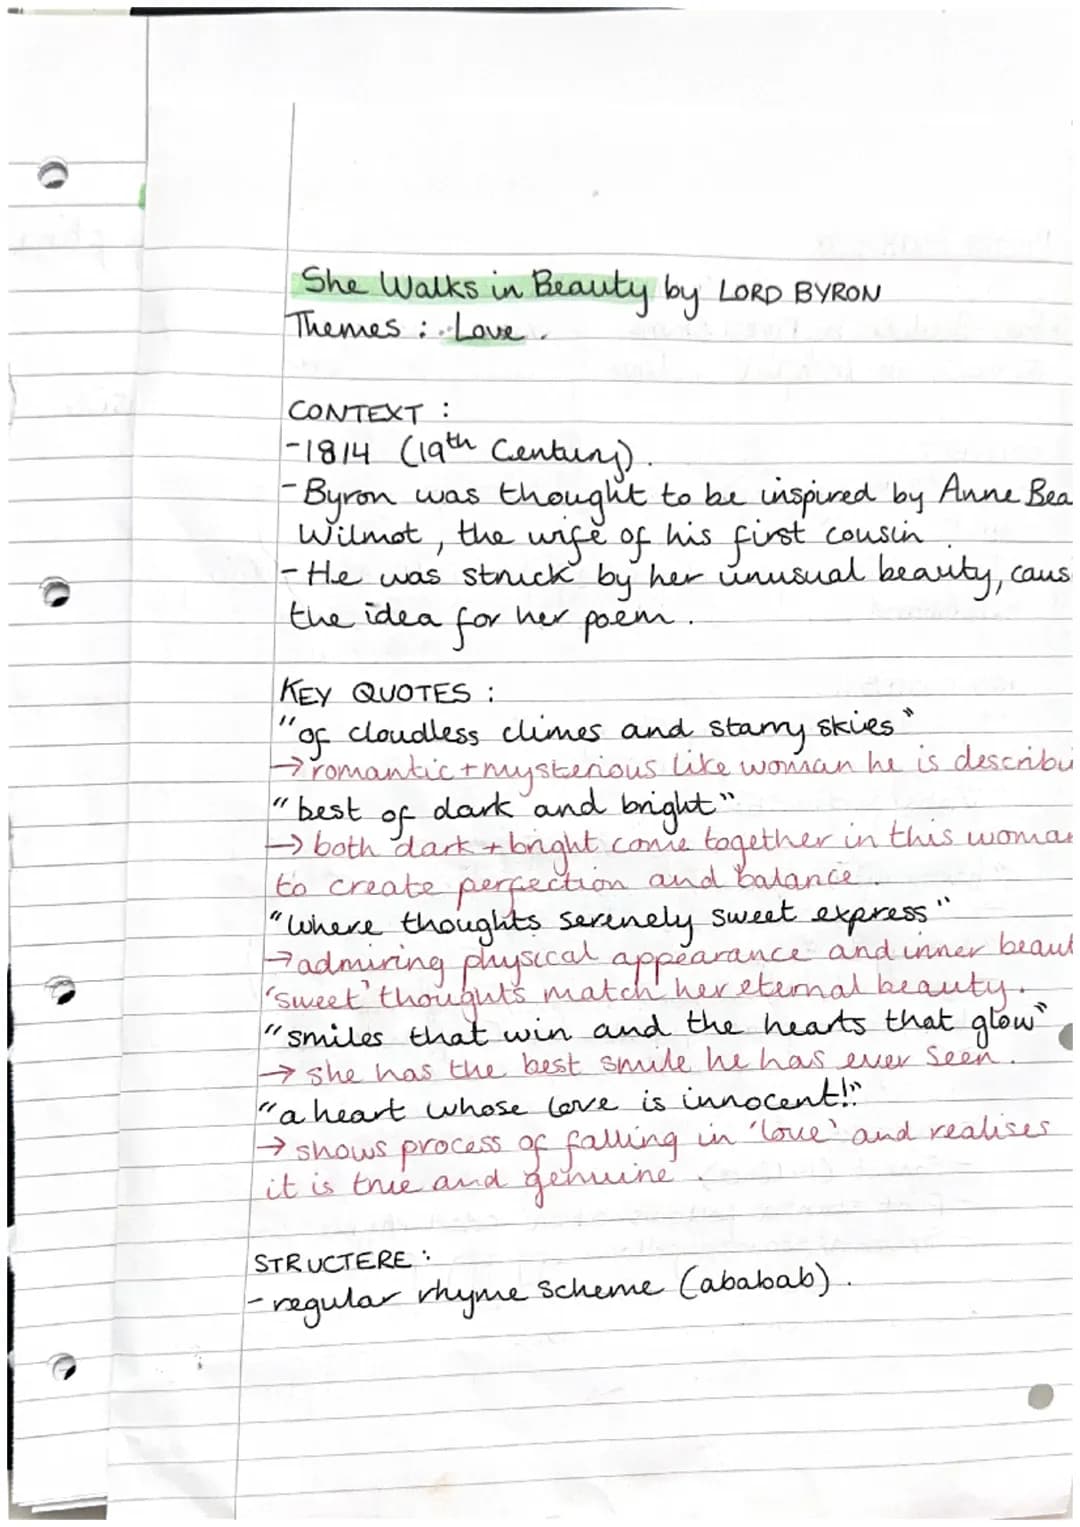 She Walks in Beauty by LORD BYRON
Themes : Love .
CONTEXT :
-1814 (19th Century) .
- Byron was thought to be inspired by Anne Bea
Wilmot , the wife of his first cousin .
- He was struck by her unusual beauty, caus
the idea for her poem .
KEY QUOTES :
"of cloudless climes and starry skies"
→ romantic + mysterious like woman he is describi
"best of dark and bright"
→ both dark + bright come together in this woman
to create perfection and balance .
"where thoughts serenely sweet express"
→ admiring physical appearance and inner beaut
'sweet' thoughts match her eternal beauty .
"smiles that win and the hearts that glow"
→ she has the best smile he has ever seen .
"a heart whose love is innocent!"
→ shows process of falling in 'love' and realises
it is true and genuine .
STRUCTERE :
- regular rhyme scheme (ababab) .